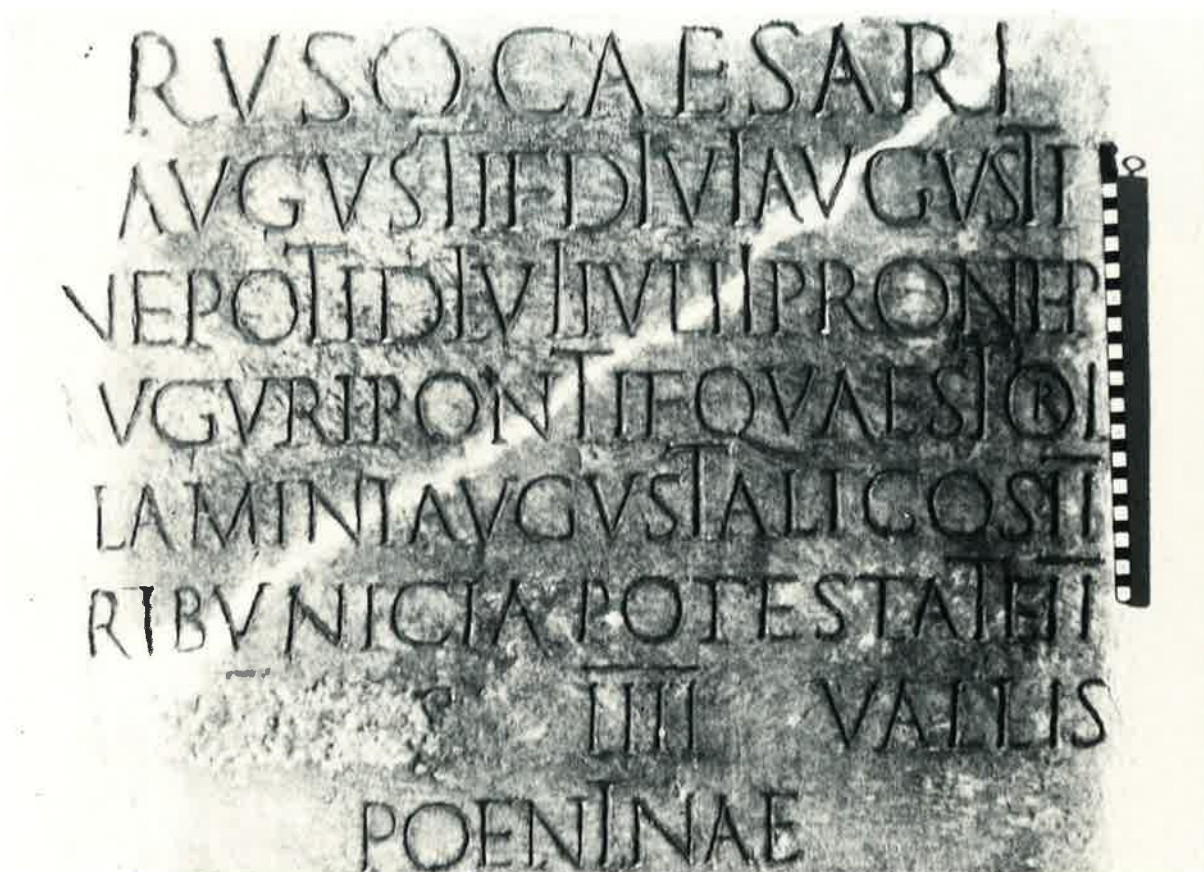 RVSO CAESARI
AVGVSTI F DIVI AVGVSTI
NEPOTI DIVI IVLII PRONEP
VGVRI PONTIF QVAESTORI
LAMINI AVGVSTALI COS TI
RIBVNICIA POTESTATE II
S IIII VALLIS
POENINAE